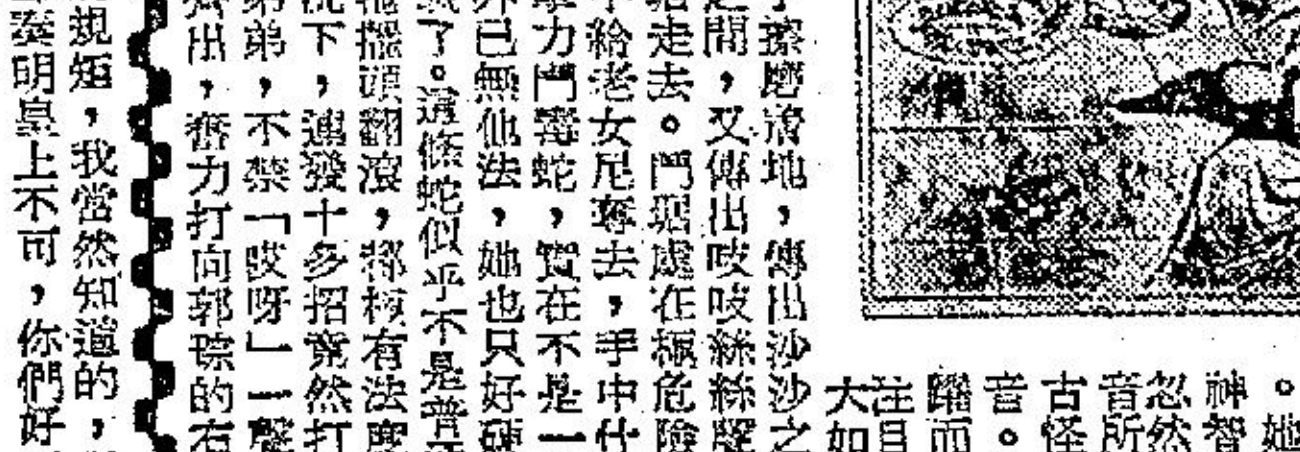 。她
神智
忽然
音所
古怪
音。
而
注目
大如
擦磨滑地，傳出沙沙之
之間，又傳出吱吱絲絲聲
走去。門
處在極危險
給老女尼奪去，手中什
力鬥毒蛇，實在不是一
已無他法，她也只好硬
了。這條蛇似乎不是普
搖頭翻滾，
有法度
下，連發十多招竟然打
弟弟，不禁「哎呀」一聲
齊出，奮力打向郭琮的右
規矩，我當然知道的，
奏明皇上不可，你們好